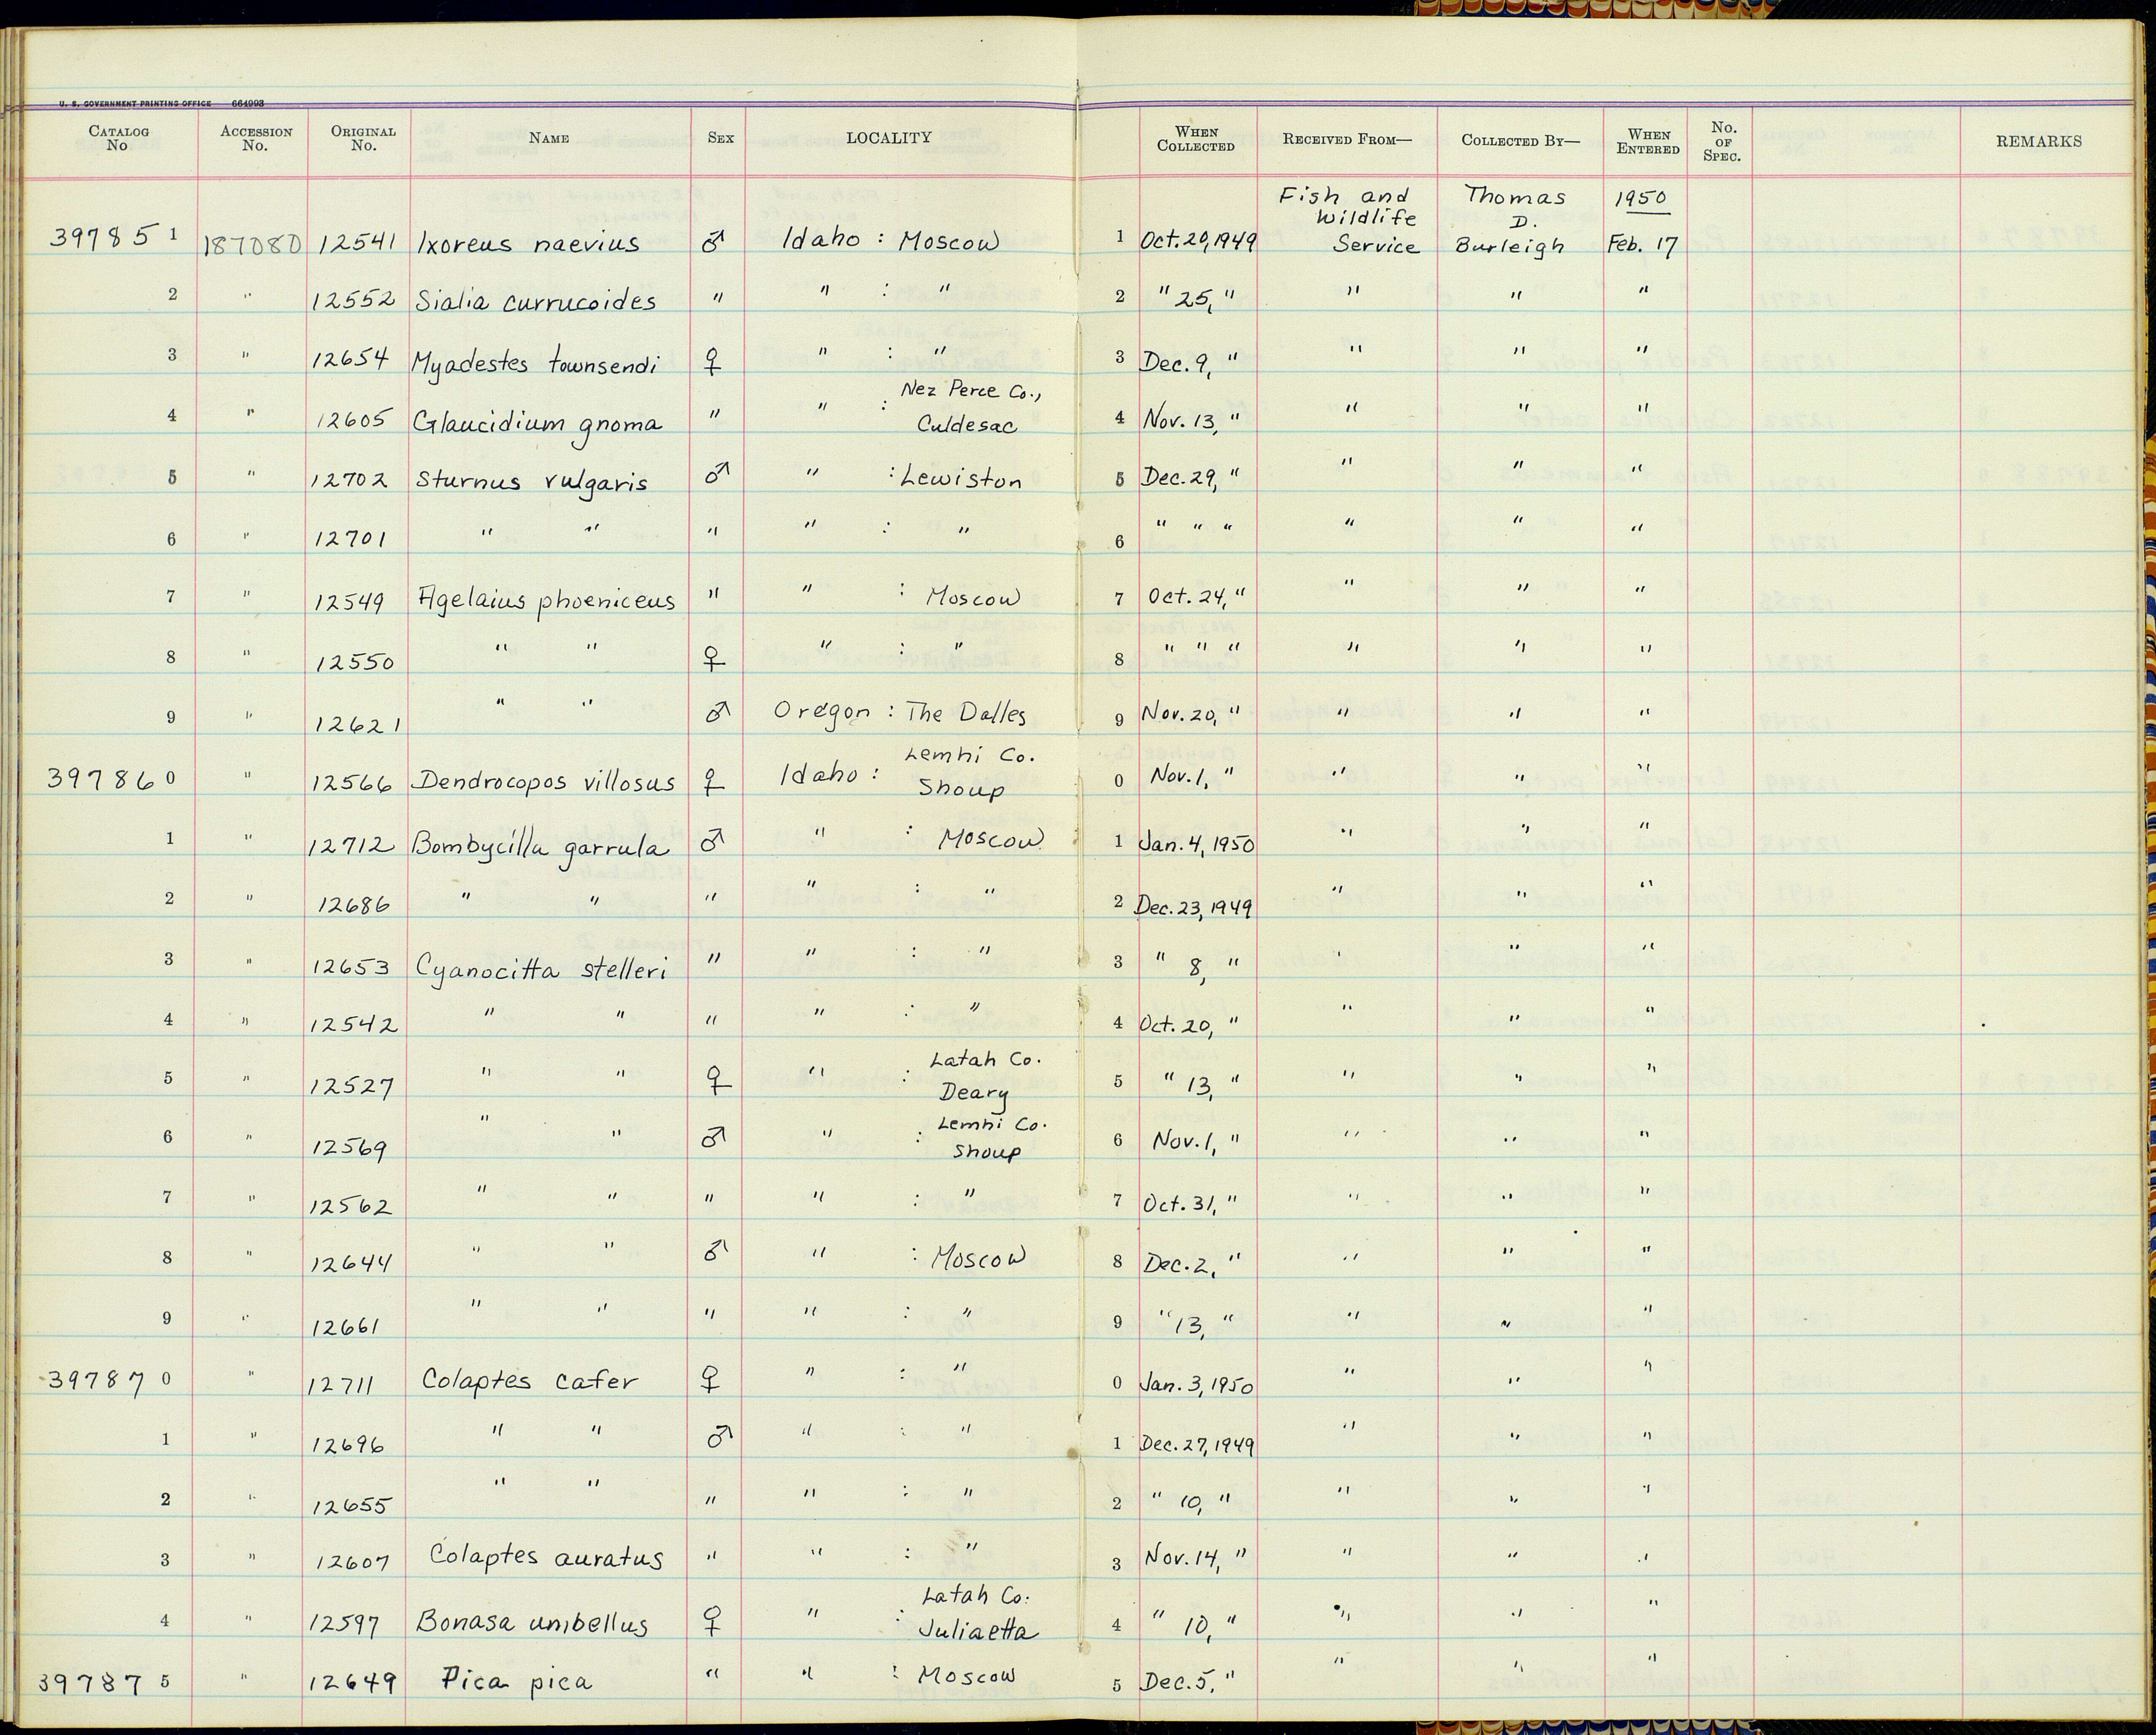 U. S. GOVERNMENT PRINTING OFFICE 664993
CATALOG No ACCESSION No. ORIGINAL No. NAME SEX LOCALITY WHEN COLLECTED RECEIVED FROM— COLLECTED BY— WHEN ENTERED No. OF SPEC. REMARKS
397851 187080 12541 Ixoreus naevius ♂ Idaho : Moscow 1 Oct. 20, 1949 Fish and Wildlife Service Thomas D. Burleigh 1950 Feb. 17
2 " 12552 Sialia currucoides " " : " 2 " 25, " " " "
3 " 12654 Myadestes townsendi ♀ " : " 3 Dec. 9, " " " "
4 " 12605 Glaucidium gnoma " " : Nez Perce Co., Culdesac 4 Nov. 13, " " " "
5 " 12702 Sturnus vulgaris ♂ " : Lewiston 5 Dec. 29, " " " "
6 " 12701 " " " " : " 6 " " " " " "
7 " 12549 Agelaius phoeniceus " " : Moscow 7 Oct. 24, " " " "
8 " 12550 " " ♀ " : " 8 " " " " " "
9 " 12621 " " ♂ Oregon : The Dalles 9 Nov. 20, " " " "
397860 " 12566 Dendrocopos villosus ♀ Idaho : Lemhi Co. Shoup 0 Nov. 1, " " " "
1 " 12712 Bombycilla garrula ♂ " : Moscow 1 Jan. 4, 1950 " " "
2 " 12686 " " " " : " 2 Dec. 23, 1949 " " "
3 " 12653 Cyanocitta stelleri " " : " 3 " 8, " " " "
4 " 12542 " " " " : " 4 Oct. 20, " " " "
5 " 12527 " " ♀ " : Latah Co. Deary 5 " 13, " " " "
6 " 12569 " " ♂ " : Lemhi Co. Shoup 6 Nov. 1, " " " "
7 " 12562 " " " " : " 7 Oct. 31, " " " "
8 " 12644 " " ♂ " : Moscow 8 Dec. 2, " " " "
9 " 12661 " " " " : " 9 " 13, " " " "
397870 " 12711 Colaptes cafer ♀ " : " 0 Jan. 3, 1950 " " "
1 " 12696 " " ♂ " : " 1 Dec. 27, 1949 " " "
2 " 12655 " " " " : " 2 " 10, " " " "
3 " 12607 Colaptes auratus " " : " 3 Nov. 14, " " " "
4 " 12597 Bonasa umbellus ♀ " : Latah Co. Juliaetta 4 " 10, " " " "
397875 " 12649 Pica pica " " : Moscow 5 Dec. 5, " " " "